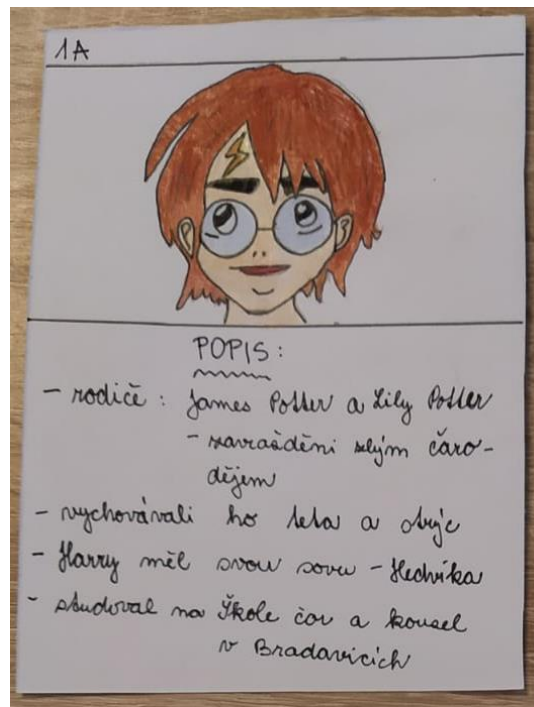 1A
POPIS:
- rodiče: James Potter a Lily Potter
- zavražděni zlým čaro-
dějem
- vychovávali ho teta a strýc
- Harry měl svou sovu - Hedvika
- studoval na Škole čar a kouzel
v Bradavicích